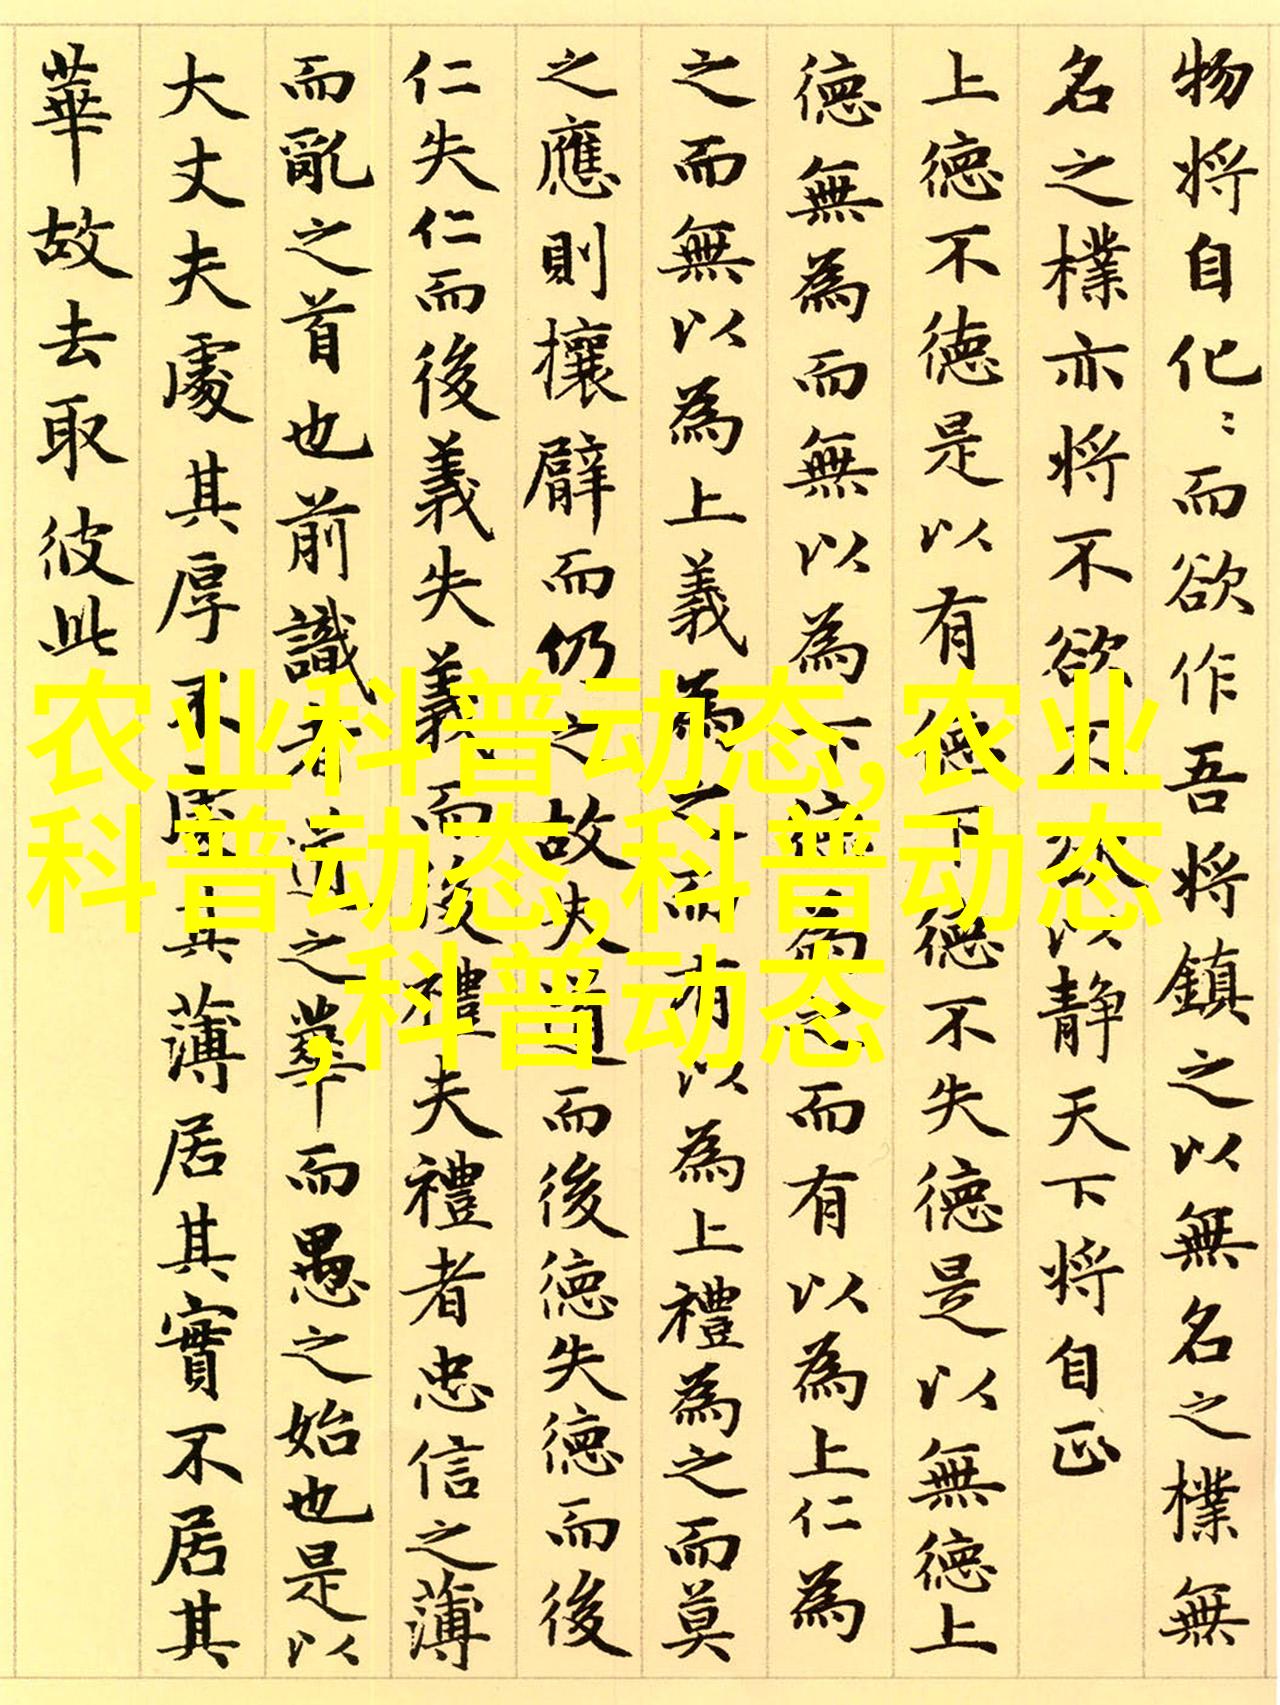 物将自化〻而欲作吾将鎮之以無名之樸無
名之樸亦将不欲不欲以静天下将自正
上徳不徳是以有徳下徳不失徳是以無徳上
徳無為而無以為下徳為之而有以為上仁為
之而無以為上義為之而有以為上禮為之而莫
之應則攘臂而仍之故失道而後徳失徳而後
仁失仁而後義失義而後禮夫禮者忠信之薄
而亂之首也前識者道之華而愚之始也是以
大丈夫處其厚不處其薄居其實不居其
華故去取彼此
农业科普动态,农业
科普动态,科普动态
,科普动态